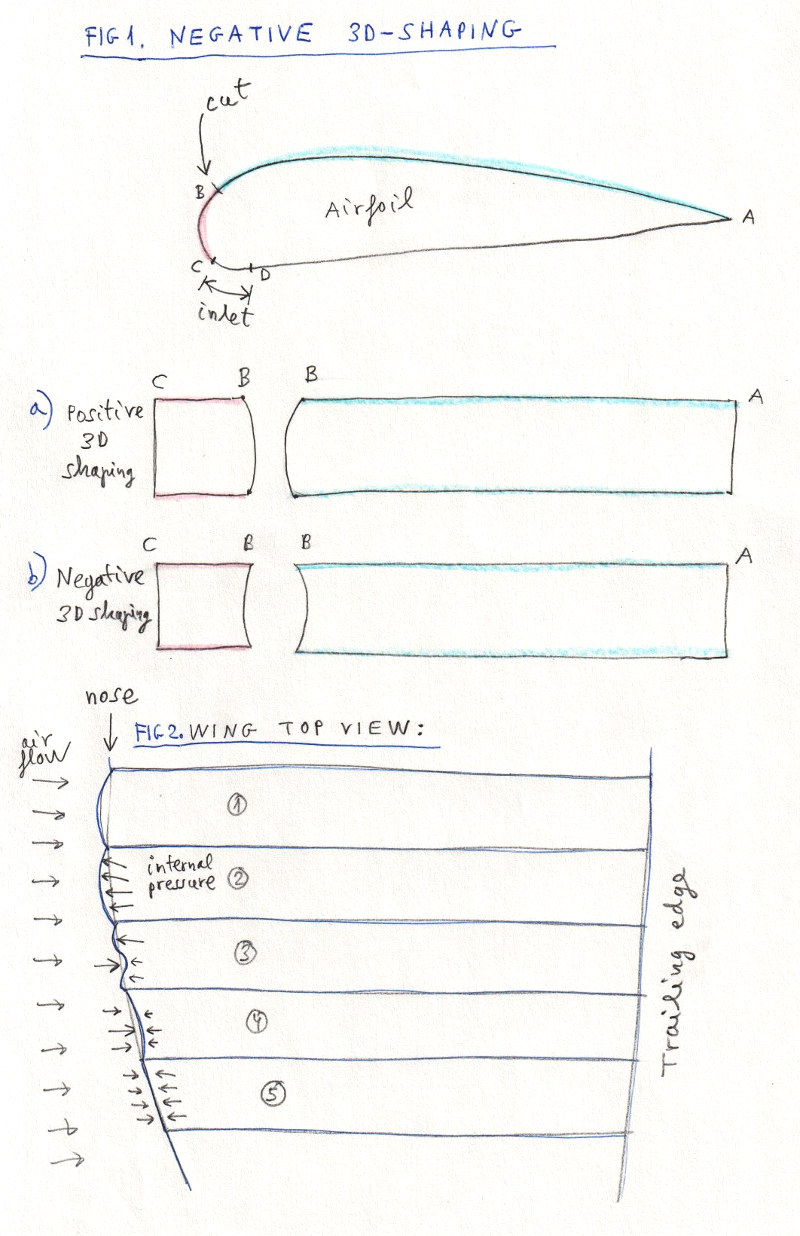 FIG 1. NEGATIVE 3D-SHAPING
cut
B
Airfoil
A
C
D
inlet
C B B A
a) Positive
3D
shaping
C B B A
b) Negative
3D shaping
nose
FIG 2. WING TOP VIEW:
air
flow
1
internal
pressure 2
3
4
5
Trailing edge